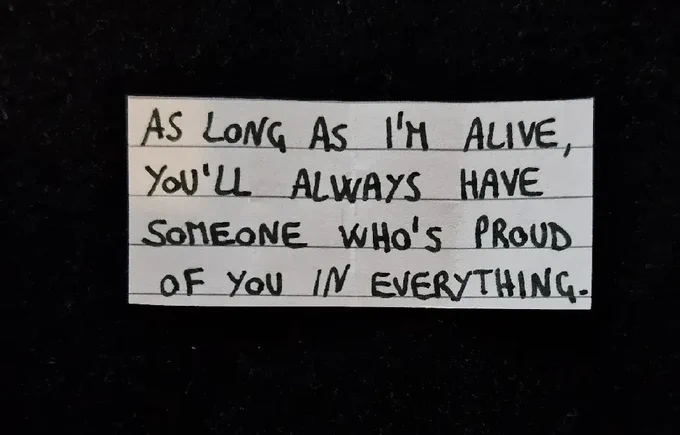 AS LONG AS I'M ALIVE,
YOU'LL ALWAYS HAVE
SOMEONE WHO'S PROUD
OF YOU IN EVERYTHING.